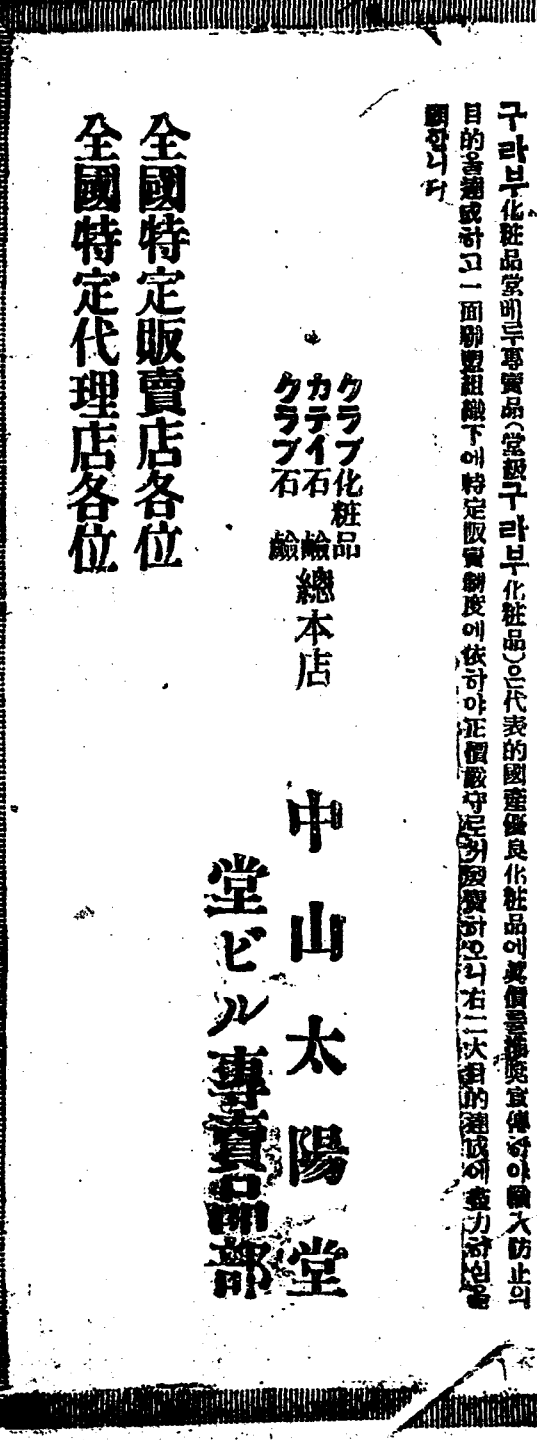 구라부化粧品堂삐루專賣品(堂級구라부化粧品)은代表的國產優良化粧品에眞價를推奬宣傳하야輸入防止의
目的을達成하고一面聯盟組織下에特定販賣制度에依하야正價嚴守로써發賣하오니右二大目的達成에盡力하심을
願합니다
クラブ化粧品
カテイ石鹼
クラブ石鹼
總本店
中山太陽堂
堂ビル專賣品部
全國特定販賣店各位
全國特定代理店各位